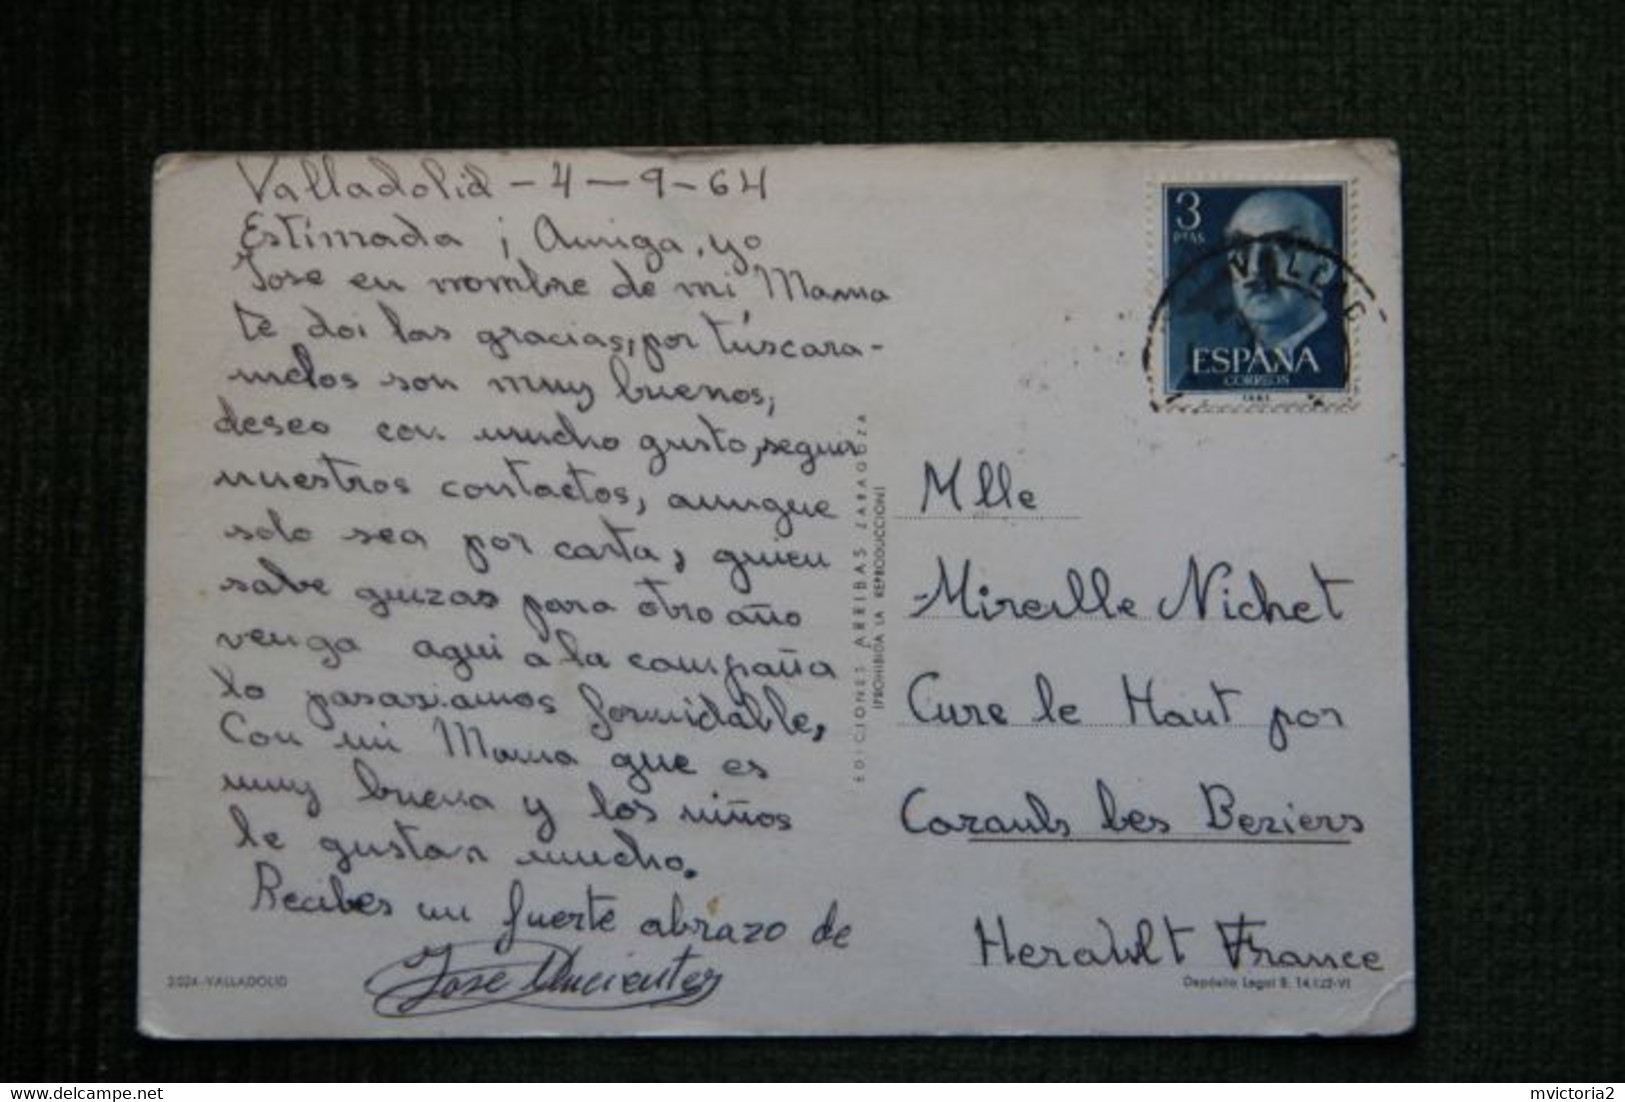 Valladolid - 4 - 9 - 64
Estimada ; Amiga, yo
Jose en nombre de mi Mama
te doi las gracias, por túscara-
melos son muy buenos,
deseo con mucho gusto, seguir
nuestros contactos, aunque
solo sea por carta, quien
sabe quizas para otro año
venga aqui a la compañia
lo pasariamos formidable,
Con mi Mama que es
muy buena y los niños
le gustan mucho.
Recibes un fuerte abrazo de
Jose
2.024-VALLADOLID
EDICIONES ARRIBAS ZARAGOZA
(PROHIBIDA LA REPRODUCCION)
3
PTAS
ESPAÑA
CORREOS
Mlle
Mireille Nichet
Cure le Haut por
les Beziers
Herault France
Depósito Legal B. 14.122-VI
mvictoria2